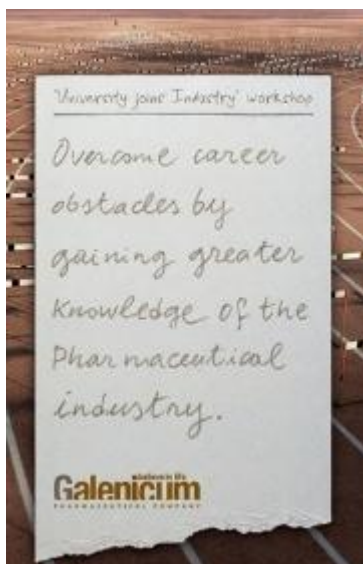 'University joins Industry' workshop
Overcome career
obstacles by
gaining greater
knowledge of the
Pharmaceutical
industry.
Galenicum
PHARMACEUTICAL COMPANY